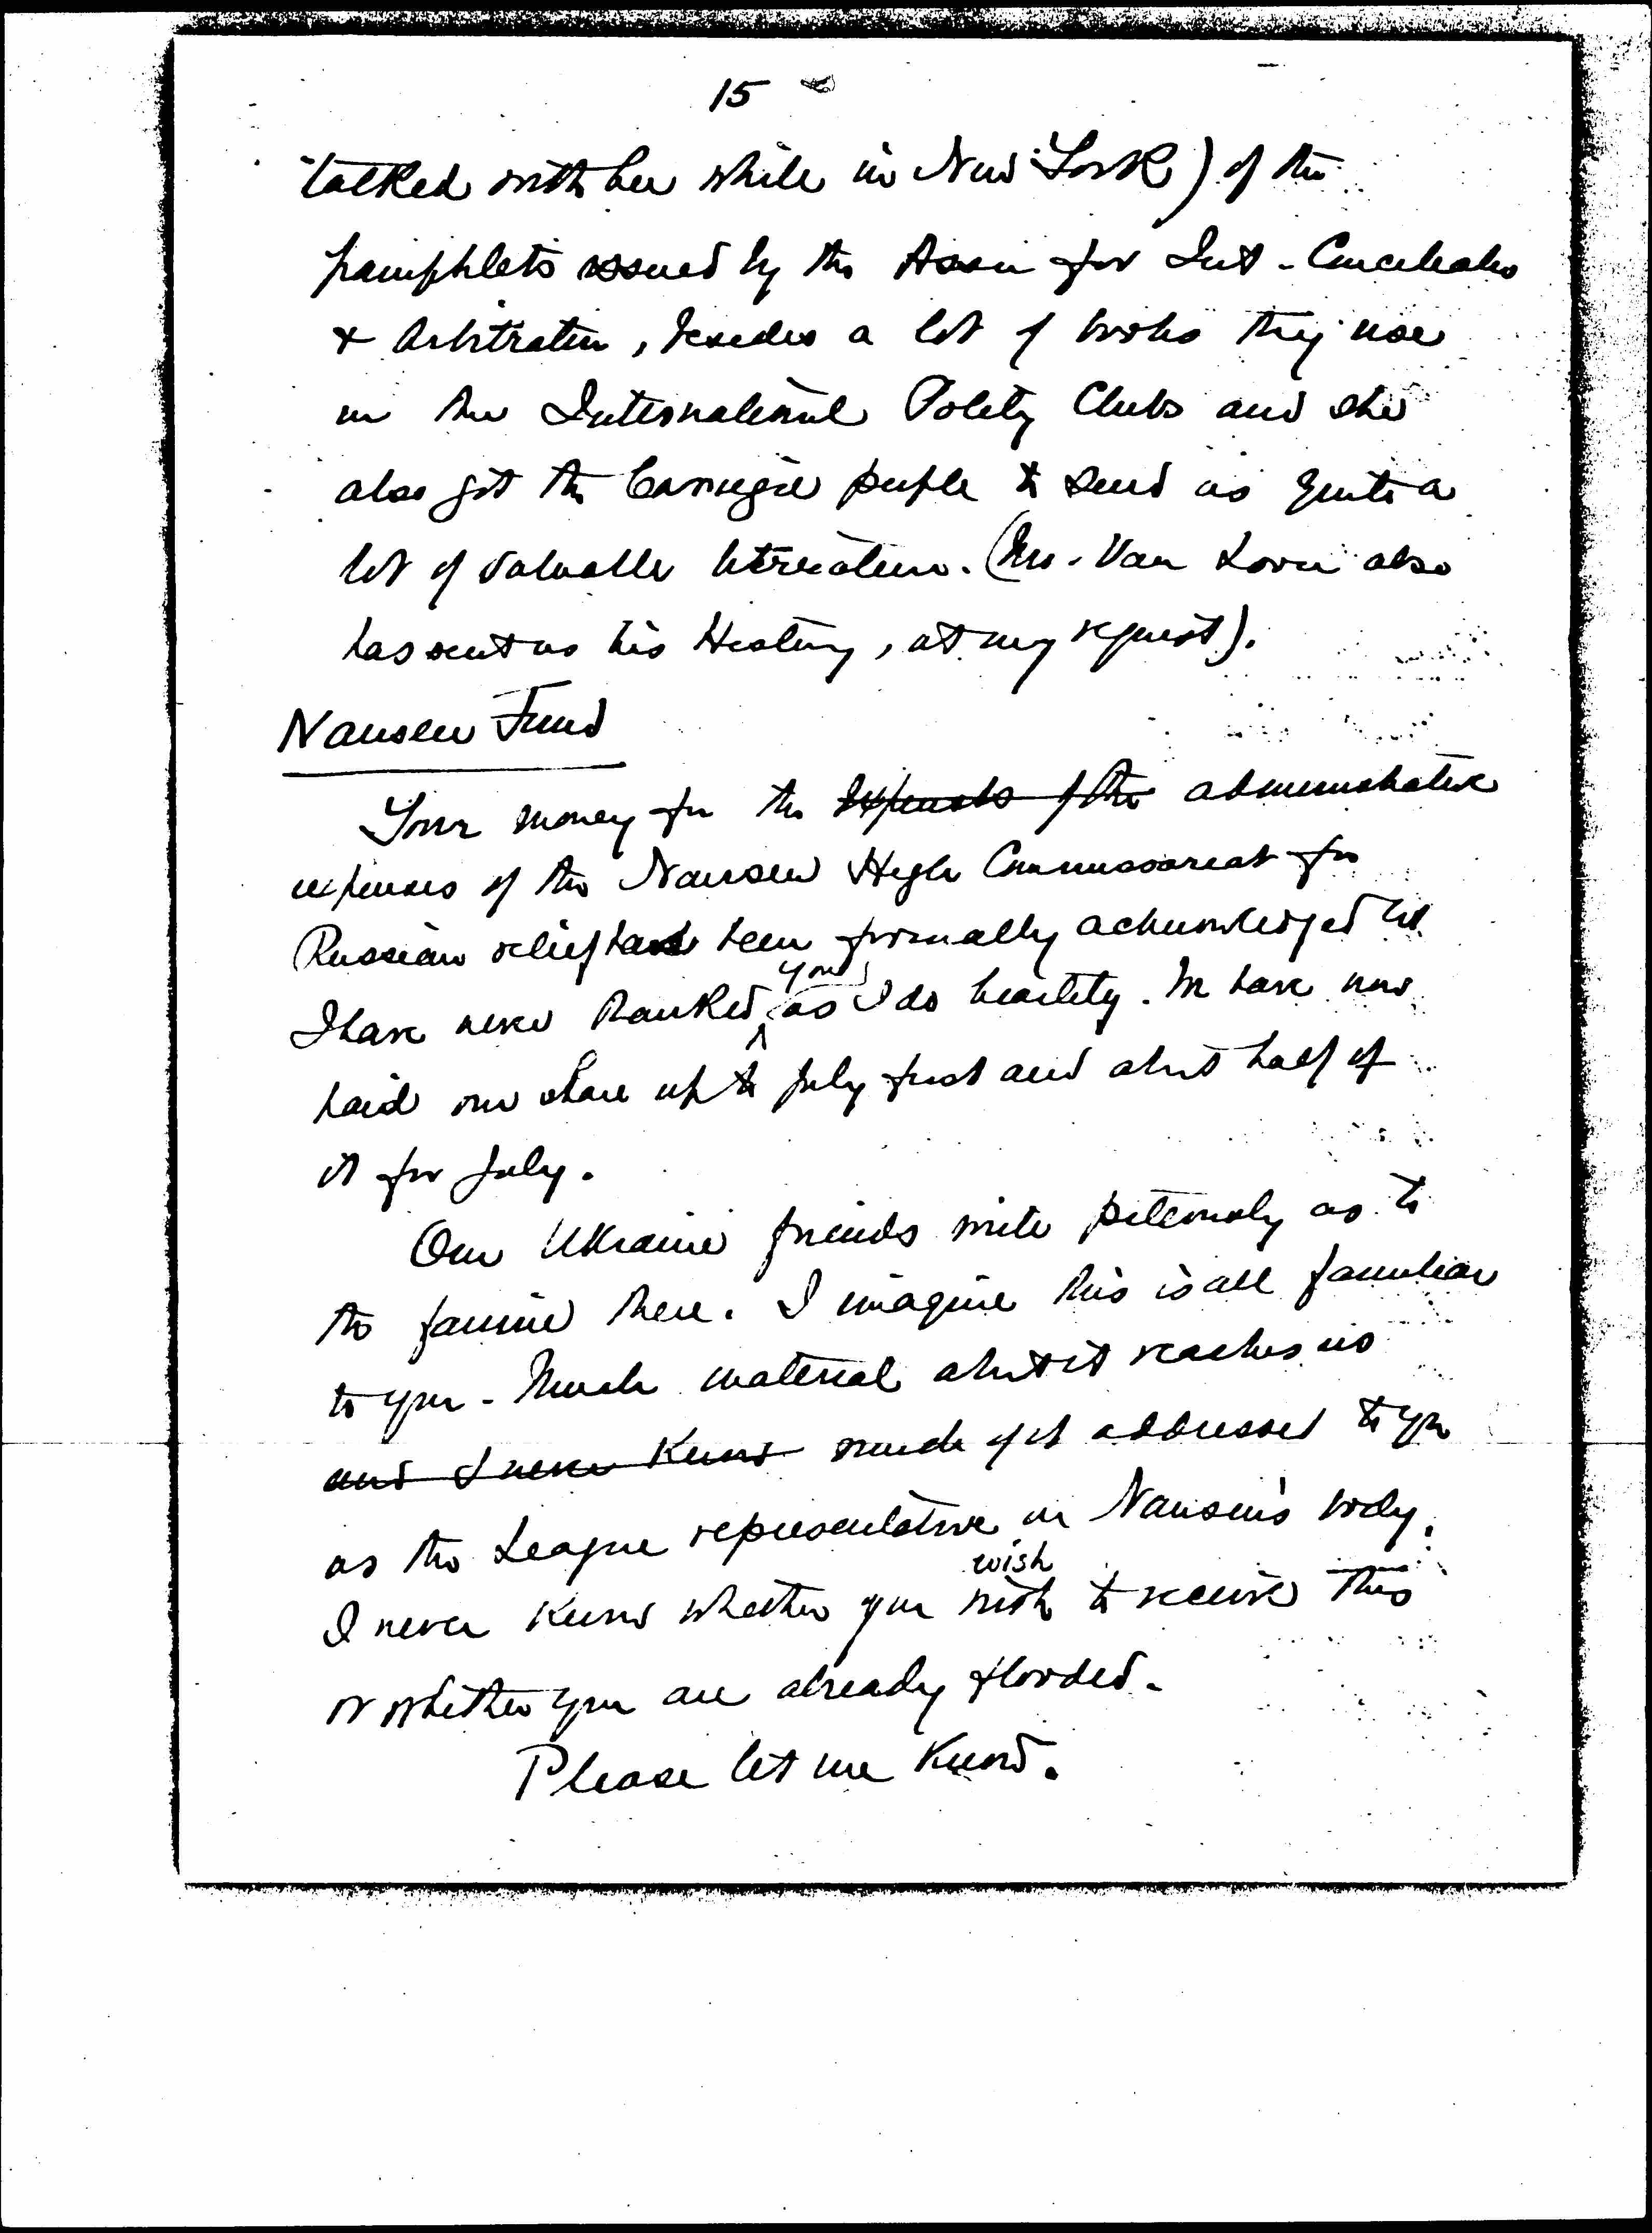 15
talked with her while in New York) of the
pamphlets issued by the Assn for Int. Conciliation
& Arbitration, besides a lot of books they use
in the International Polity Clubs and she
also got the Carnegie people to send us quite a
lot of valuable literature. (Mr. Van Loon also
has sent us his History, at my request).
Nansen Fund
Your money for the expenses of the administative
expenses of the Nansen High Commissariat for
Russian relief has been formally acknowledged but
I have never thanked you as I do heartily. We have now
paid our share up to July first and about half of
it for July.
Our Ukraine friends write piteously as to
the famine there. I imagine this is all familiar
to you - Much material about it reaches us
and I never know much of it addressed to you
as the League representative on Nansen's body.
I never know whether you wish wish to receive this
or whether you are already flooded.
Please let me know.